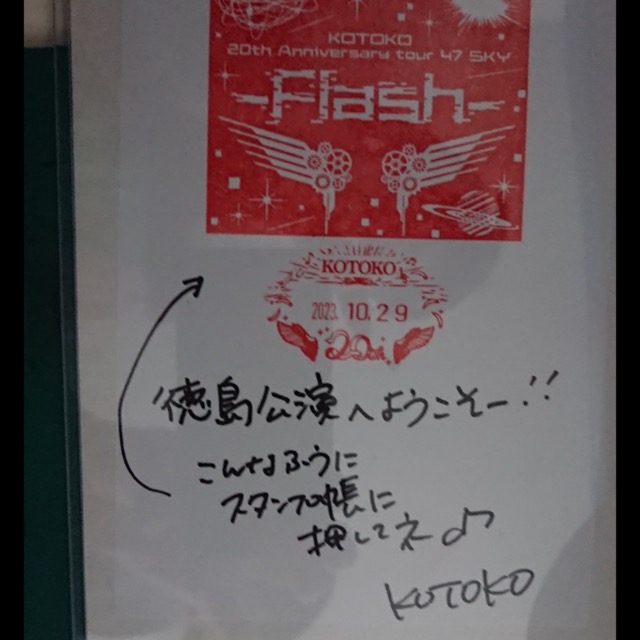 KOTOKO
20th Anniversary tour 47 SKY
-Flash-
KOTOKO
2023.10.29
20th
徳島公演へようこそー!!
こんなふうに
スタンプ帳に
押してネ♪
KOTOKO